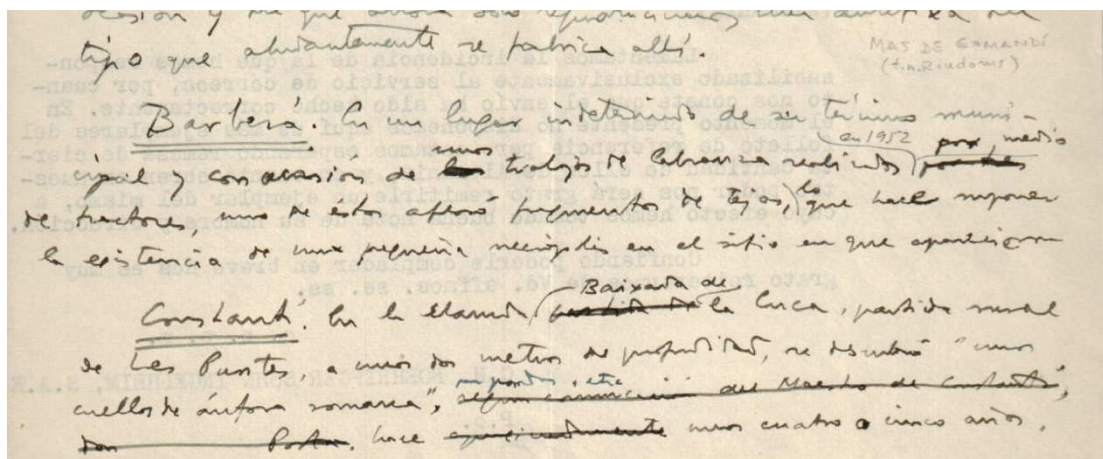 ocasión y de que ahora solo
tipo que abundantemente se fabrica allí.
MAS DE GOMANDÍ
(t.m. Riudoms)
Barberá. En un lugar indeterminado de su término muni-
cipal y con ocasión de unos trabajos de labranza realizados en 1952 por medio
de tractores, uno de estos afloró fragmentos de tejas, lo que hace suponer
la existencia de una pequeña necrópolis en el sitio en que aparecieron
Constantí. En la llamada Baixada de la Cuca, partida rural
de Les Puntes, a unos dos metros de profundidad, se descubrió "unos
cuellos de ánfora romana", según comunicación del Maestro de Constantí,
don hace aproximadamente unos cuatro o cinco años.